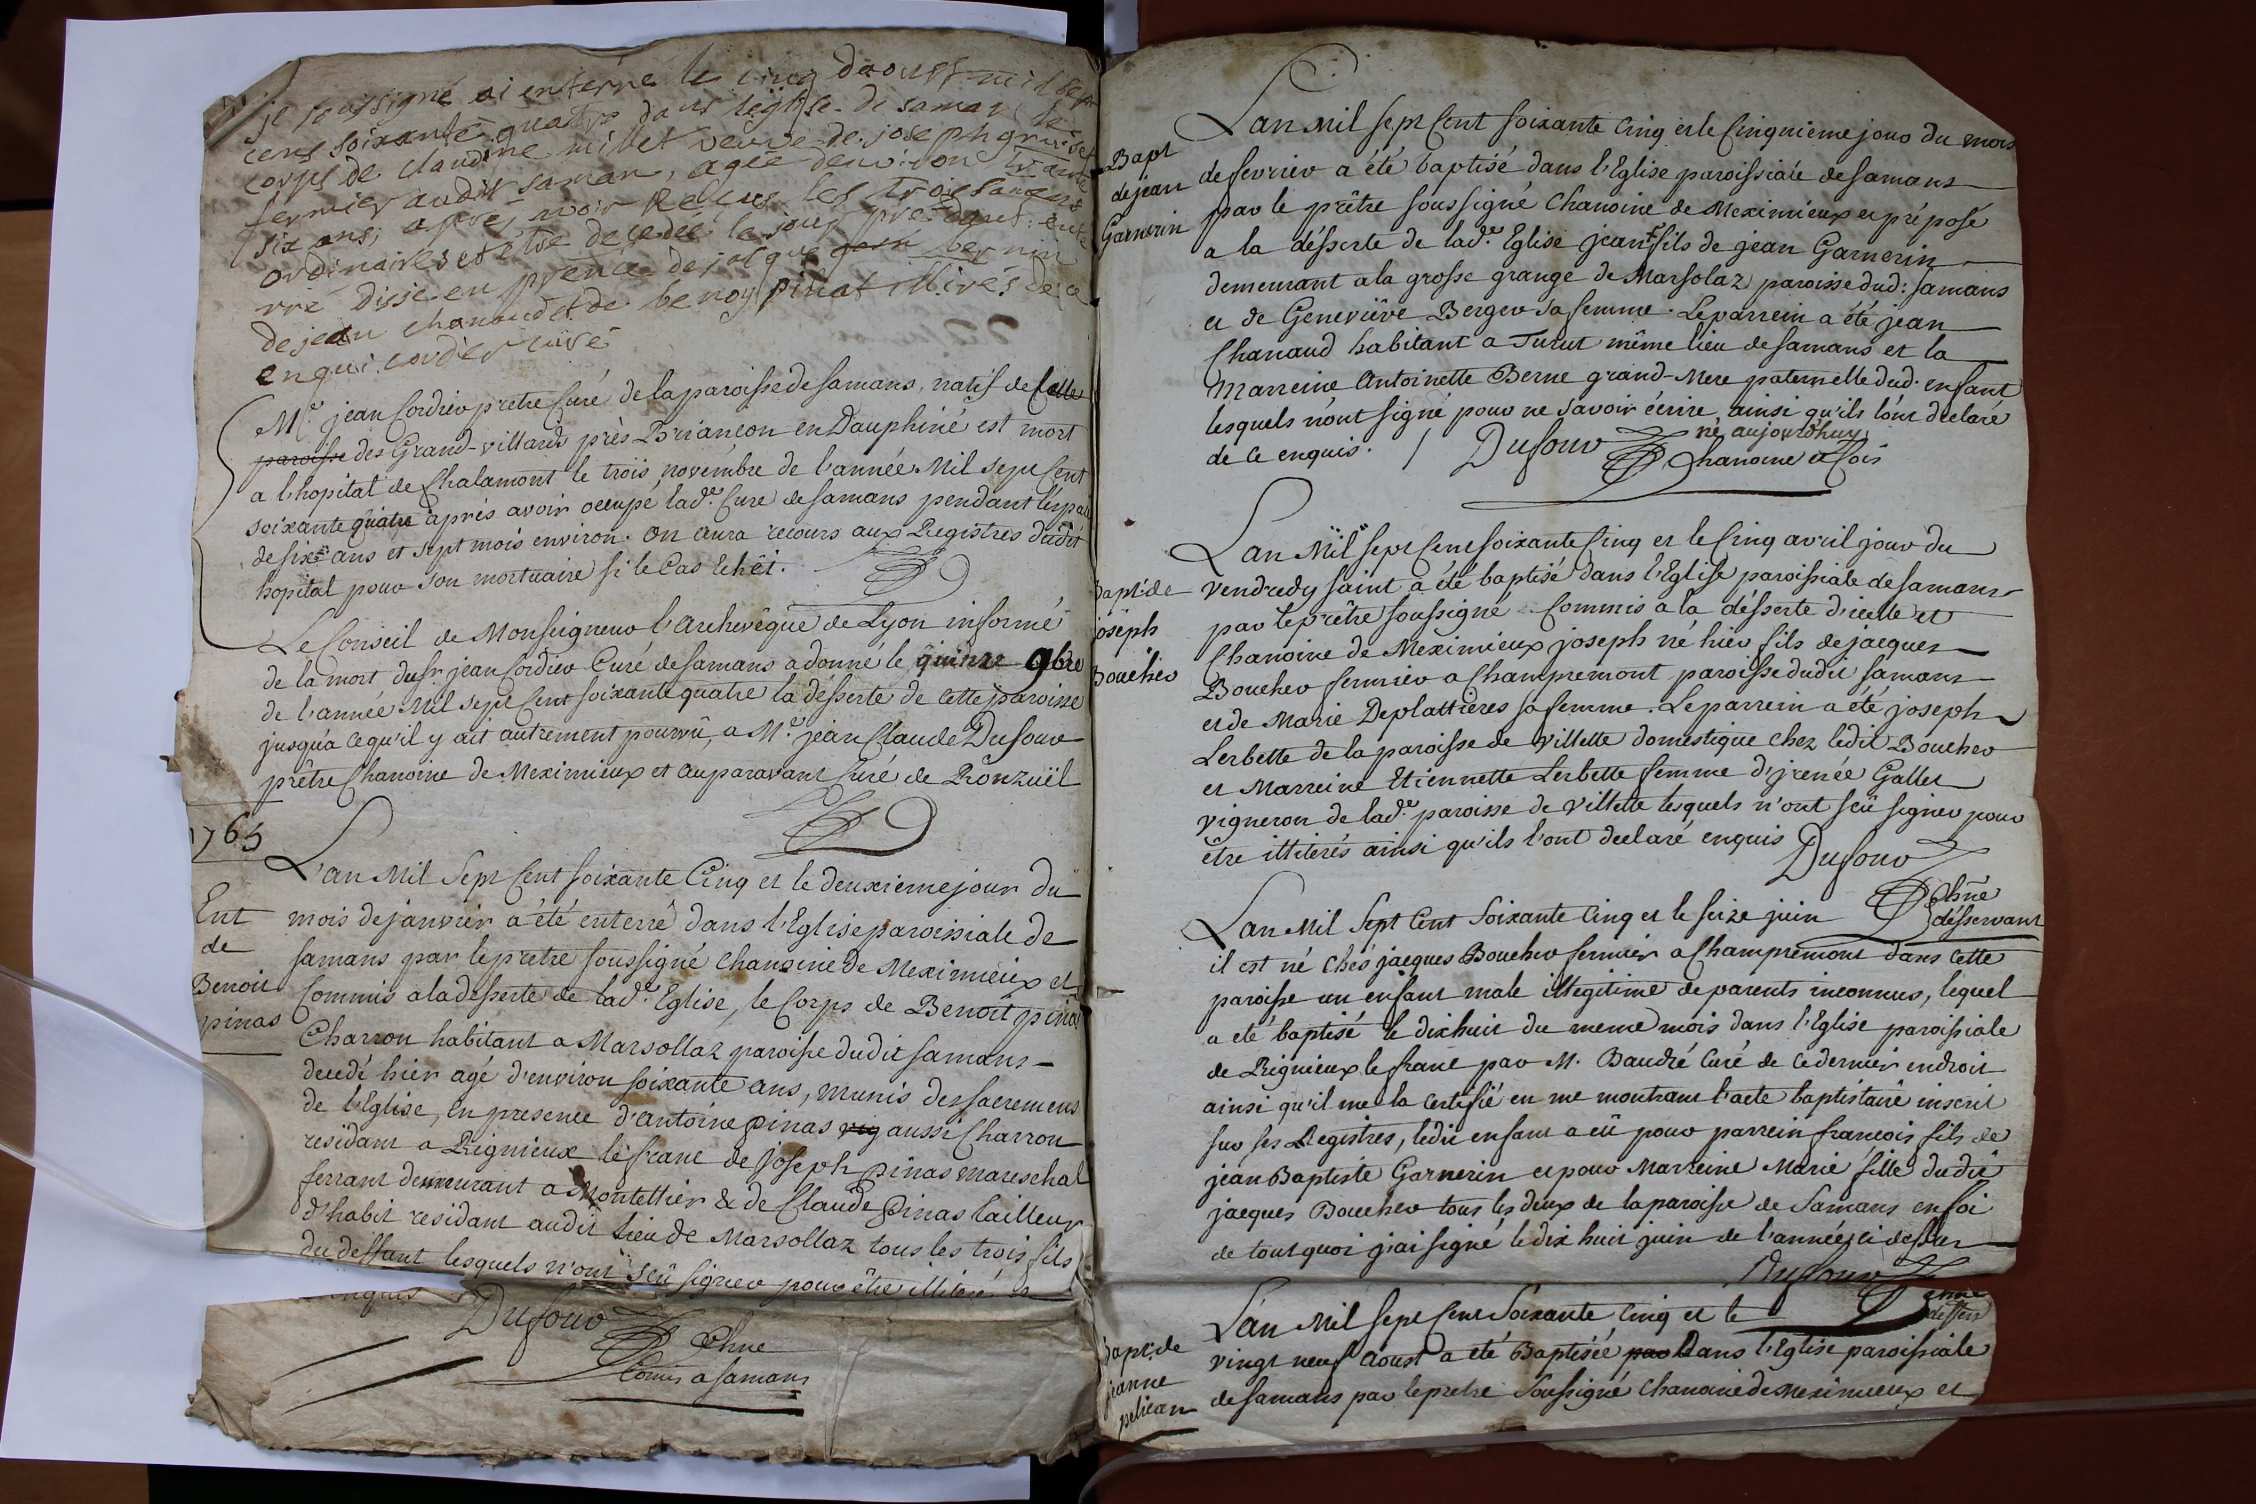 je soussigné ai enterré le cinq daoust mil sept
cens soixante quatre dans leglise de saman le
corps de claudine millet veuve de joseph
fermier audit saman, agée denviron trante
six ans, aprés avoir Reçus les trois sacrems
ordinaires et etre decedée le jour precedant ente
rré disje en prence de jacque bernin
de jean chanaud et de benoy pinat illirés de ce
enqui. cordier curé
Mre jean Cordier prêtre Curé de la paroisse de samans, natif de Celle
paroisse des Grand-villards près Briancon en Dauphiné est mort
a l'hopital de Chalamont le trois novembre de l'année Mil sept Cent
soixante quatre après avoir occupé lade. Cure de samans pendant l'éspace
de six ans et sept mois environ. On aura recours aux Registres dudit
hopital pour son mortuaire si le Cas Echêt.
Le Conseil de Monseigneur l'archevêque de Lyon informé
de la mort du sr jean Cordier Curé de samans a donné le quinze 9bre
de l'année Mil sept Cent soixante quatre la désserte de cette paroisse
jusqu'a cequ'il y ait autrement pourvû, a Mre jean Claude Dufour
prêtre Chanoine de Meximieux et auparavant Curé de Ronzuël
1765
L'an Mil Sept Cent soixante Cinq et le deuxieme jour du
Ent
de
Benoit
pinas
mois de janvier a été enterré dans l'Eglise paroissiale de
samans par le prêtre soussigné chanoine de Meximieux et
Commis a la desserte de lade. Eglise, le Corps de Benoît pinas
Charron habitant a Marsollaz paroisse dudit samans
decedé hier agé d'environ soixante ans, munis des sacremens
de l'Eglise, en presence d'antoine pinas vig aussi Charron
residant a Rignieux le franc de joseph pinas mareschal
ferrant demeurant a Montellier & de Claude pinas tailleur
d'habit residant audit lieu de Marsollaz tous les trois fils
du deffunt lesquels n'ont sçu signer pour être illiterés
enquis Dufour
Chne
Comis a samans
L'an Mil sept Cent soixante Cinq et le Cinquieme jour du mois
Bapt
de jean
Garnerin
de fevrier a été baptisé dans l'Eglise paroissiale de samans
par le prêtre soussigné Chanoine de Meximieux et préposé
a la désserte de lade. Eglise jean fils de jean Garnerin
demeurant a la grosse grange de Marsolaz paroisse dud: samans
et de Geneviève Berger sa femme. Le parrein a été jean
Chanaud habitant a Turut même lieu de samans et la
Marreine Antoinette Berne grand-Mere paternelle dud. enfant
lesquels n'ont signé pour ne savoir écrire, ainsi qu'ils l'ont declaré
né aujourd'huy
de ce enquis. / Dufour Chanoine
L'an Mil sept Cent soixante Cinq et le Cinq avril jour du
Bapt: de
joseph
Boucher
vendredy saint a été baptisé dans l'Eglise paroissiale de samans
par le prêtre soussigné Commis a la désserte d'icelle et
Chanoine de Meximieux joseph né hier fils de jacques
Boucher fermier a Champremont paroisse dudit samans
et de Marie Deplattieres sa femme. Le parrein a été joseph
Lerbette de la paroisse de villette domestique chez ledit Boucher
et Marreine Etiennette Lerbette femme d'jrenée Gallet
vigneron de lade. paroisse de villette lesquels n'ont sçû signer pour
être illiterés ainsi qu'ils l'ont declaré enquis Dufour
Chne
désservant
L'an Mil Sept Cent Soixante Cinq et le seize juin
il est né chés jacques Boucher fermier a Champremont dans cette
paroisse un enfant male illegitime de parents inconnus, lequel
a eté baptisé le dixhuit du meme mois dans l'Eglise paroissiale
de Rignieux le franc par M. Baudré Curé de ce dernier endroit
ainsi qu'il me la certifié en me montrant l'acte baptistaire inscrit
sur ses Registres, ledit enfant a eû pour parrein francois fils de
jean Baptiste Garnerin et pour Marreine Marie fille dudit
jacques Boucher tous les deux de la paroisse de Samans en foi
de tout quoi j'ai signé le dix huit juin de l'année ci dessus
Dufour
chne
L'an Mil sept Cent Soixante Cinq et le
Bapt: de
jeanne
pelican
vingt neuf Aoust a été Baptisée par dans l'Eglise paroissiale
de samans par le prêtre Soussigné Chanoine de Meximieux et